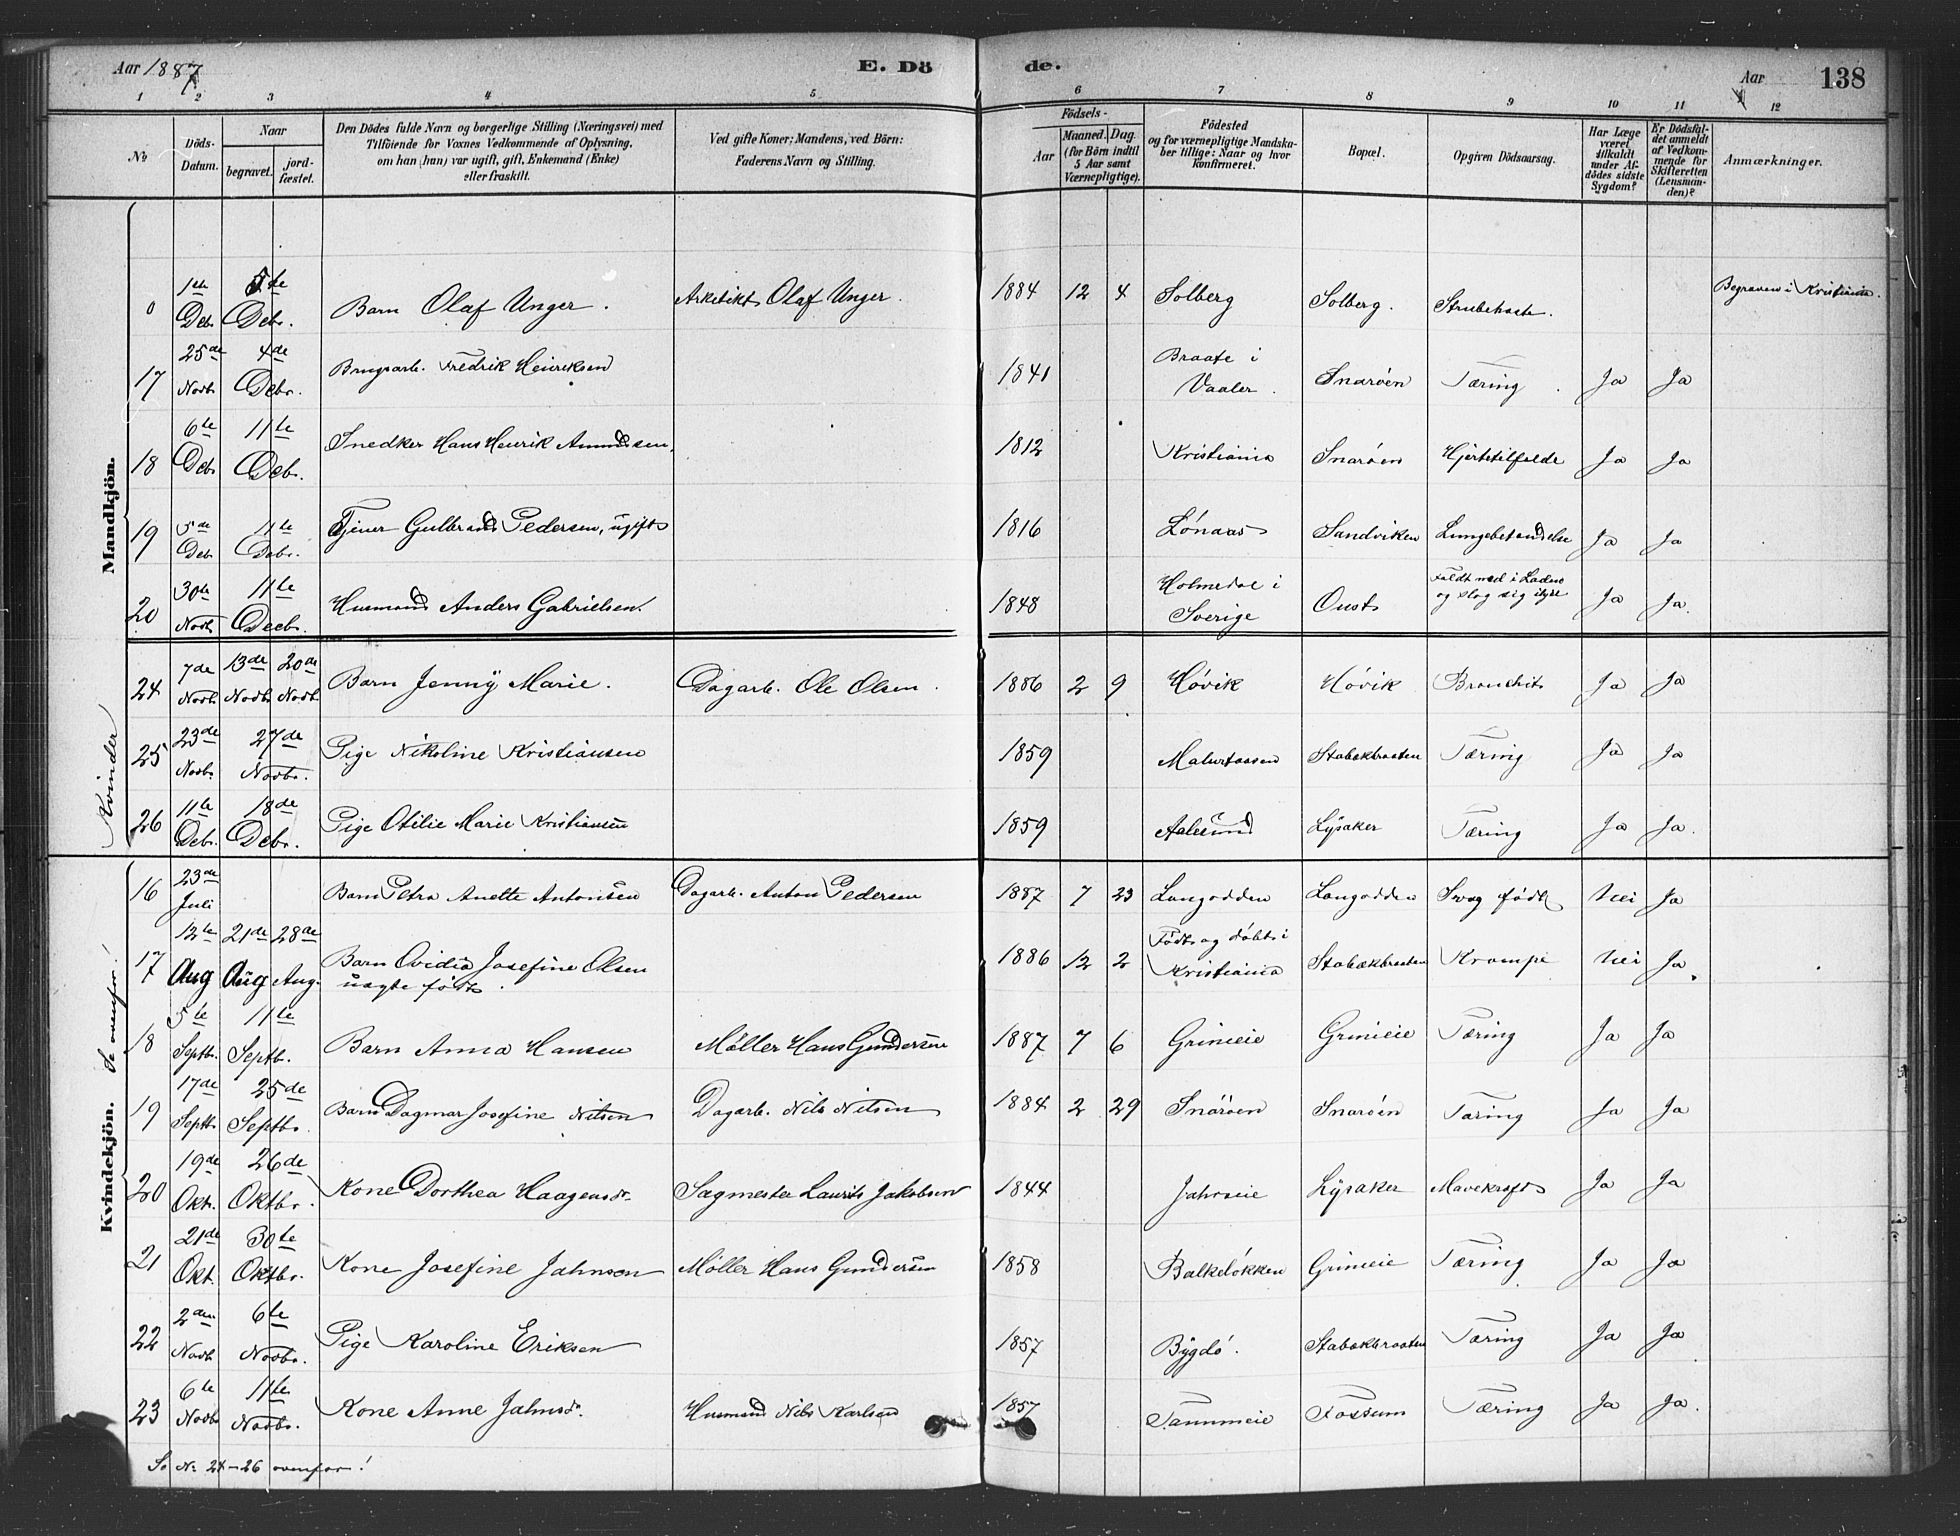 Aar 1887 E. Dö de. Aar 138
1 2 3 4 5 6 7 8 9 10 11 12
No.
Döds-Datum.
Naar
begravet.
jord-fæstet.
Den Dödes fulde Navn og borgerlige Stilling (Næringsvei) med
Tilföiende for Voxnes Vedkommende af Oplysning,
om han (hun) var ugift, gift, Enkemand (Enke)
eller fraskilt.
Ved gifte Koner: Mandens, ved Börn:
Faderens Navn og Stilling.
Födsels-
Aar
Maaned. Dag.
(for Börn indtil
5 Aar samt
Værnepligtige).
Födested
og for værnepligtige Mandska-
ber tillige: Naar og hvor
konfirmeret.
Bopæl.
Opgiven Dödsaarsag.
Har Læge
været
tilkaldt
under Af-
dödes sidste
Sygdom?
Er Dödsfal-
det anmeldt
af Vedkom-
mende for
Skifteretten
(Lensman-
den)?
Anmærkninger.
Mandkjön.
0 1ste Decb. 5te Decbr. Barn Olaf Unger. Arkitekt Olaf Unger. 1884 12 4 Solberg Solberg. Strubehoste. Begraven i Kristiania.
17 25de Novb. 4de Decbr. Brugsarb. Fredrik Henriksen 1841 Braate i Vaaler. Snarøen Tæring. Ja Ja
18 6te Decb. 11te Decbr. Snedker Hans Henrik Amundsen. 1812 Kristiania Snarøen Hjertetilfælde Ja Ja
19 5te Deb. 11te Debr. Tjener Gulbrand Pedersen, ugift 1816 Lønaas Sandviken Lungebetændelse Ja Ja
20 30te Novb. 11te Decbr. Husmand Anders Gabrielsen. 1848 Holmedal i Sverige Oust Faldt ned i Laden og slog sig ihjel Ja Ja.
Kvinder
24 7de Novb. 13de Novb. 20de Novb. Barn Jenny Marie. Dagarb. Ole Olsen. 1886 2 9 Høvik Høvik Bronchit Ja Ja
25 23de Novb. 27de Novbr. Pige Nikoline Kristiansen 1859 Stabækbraaten Tæring Ja Ja
26 11te Debr. 18de Debr. Pige Otilie Marie Kristiansen 1859 Aalesund Lysaker Tæring Ja Ja.
Kvindekjön. Se ovenfor!
16 23de Juli Barn Petra Anette Antonsen Dagarb. Anton Pedersen 1887 7 23 Langodden Langodden Svag født Nei Ja
17 12te Aug 21de Aug 28de Aug. Barn Ovidia Josefine Olsen uægte født. 1886 12 2 Født og døbt i Kristiania Stabækbraaten Krampe Nei Ja.
18 5te Septb. 11te Septbr. Barn Anna Hansen Møller Hans Gundersen 1887 7 6 Grinieie Grinieie Tæring Ja Ja
19 17de Septb. 25de Septbr. Barn Dagmar Josefine Nilsen Dagarb. Nils Nilsen 1884 2 29 Snarøen Snarøen Tæring Ja Ja
20 19de Okt. 26de Oktbr. Kone Dorthea Haagensdr. Sagmester Laurits Jakobsen 1844 Jahreie Lysaker Mavekræft Ja Ja
21 21de Okt. 30te Oktbr. Kone Josefine Jahnsen Møller Hans Gundersen 1858 Balkeløkken Grinieie Tæring Ja Ja
22 2den Novb. 6te Novbr. Pige Karoline Eriksen 1857 Bygdø. Stabækbraaten Tæring Ja Ja
23 6te Novb. 11te Novbr. Kone Anne Jahnsdr. Husmand Nils Karlsen 1857 Fossum Tæring Ja Ja.
Se No 24–26 ovenfor!